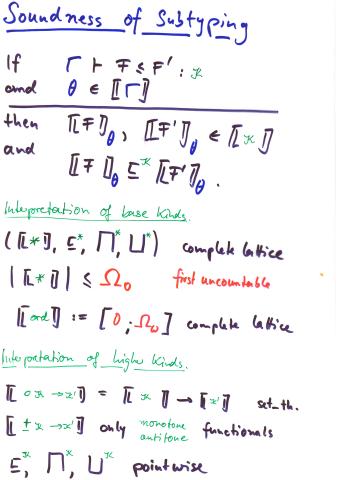 Soundness of Subtyping
If Γ ⊢ F ≤ F' : κ
and θ ∈ ⟦Γ⟧
then ⟦F⟧θ, ⟦F'⟧θ ∈ ⟦κ⟧
and ⟦F⟧θ ⊑^κ ⟦F'⟧θ.
Interpretation of base kinds.
(⟦*⟧, ⊑*, ⊓*, ⊔*) complete lattice
|⟦*⟧| ≤ Ω₀ first uncountable
⟦ord⟧ := [0; Ω_ω] complete lattice
Interpretation of higher kinds.
⟦∘κ → κ'⟧ = ⟦κ⟧ → ⟦κ'⟧ set_th.
⟦±κ → κ'⟧ only monotone
antitone functionals
⊑^κ, ⊓^κ, ⊔^κ pointwise